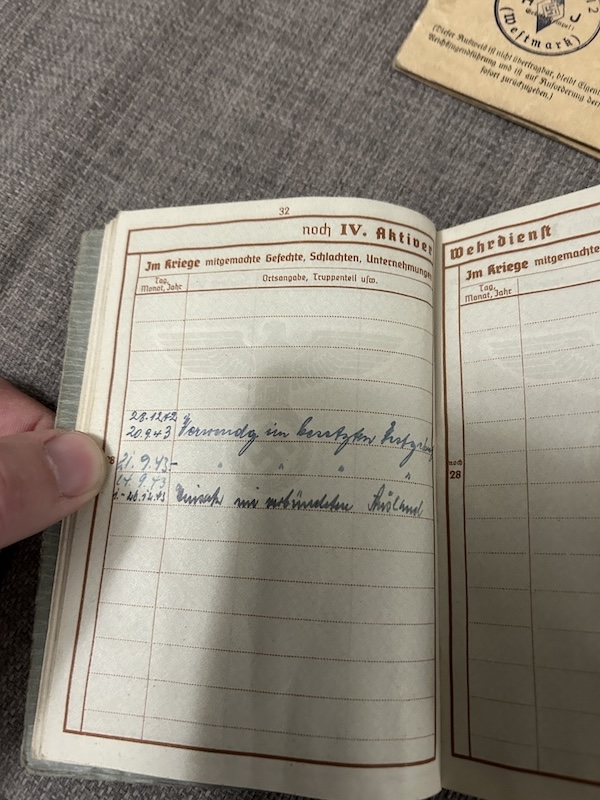 (Westmark)
(Dieser Ausweis ist nicht übertragbar, bleibt Eigen
Reichsjugendführung und ist auf Anforderung der
sofort zurückzugeben.)
32
noch IV. Aktiver Wehrdienst
Im Kriege mitgemachte Gefechte, Schlachten, Unternehmungen
Tag, Monat, Jahr
Ortsangabe, Truppenteil usw.
28.12.42
20.9.43 Verwendg im besetzten
21.9.43- " " " "
Einsatz im verbündeten Ausland
Im Kriege mitgemachte
Tag,
Monat, Jahr
noch
28